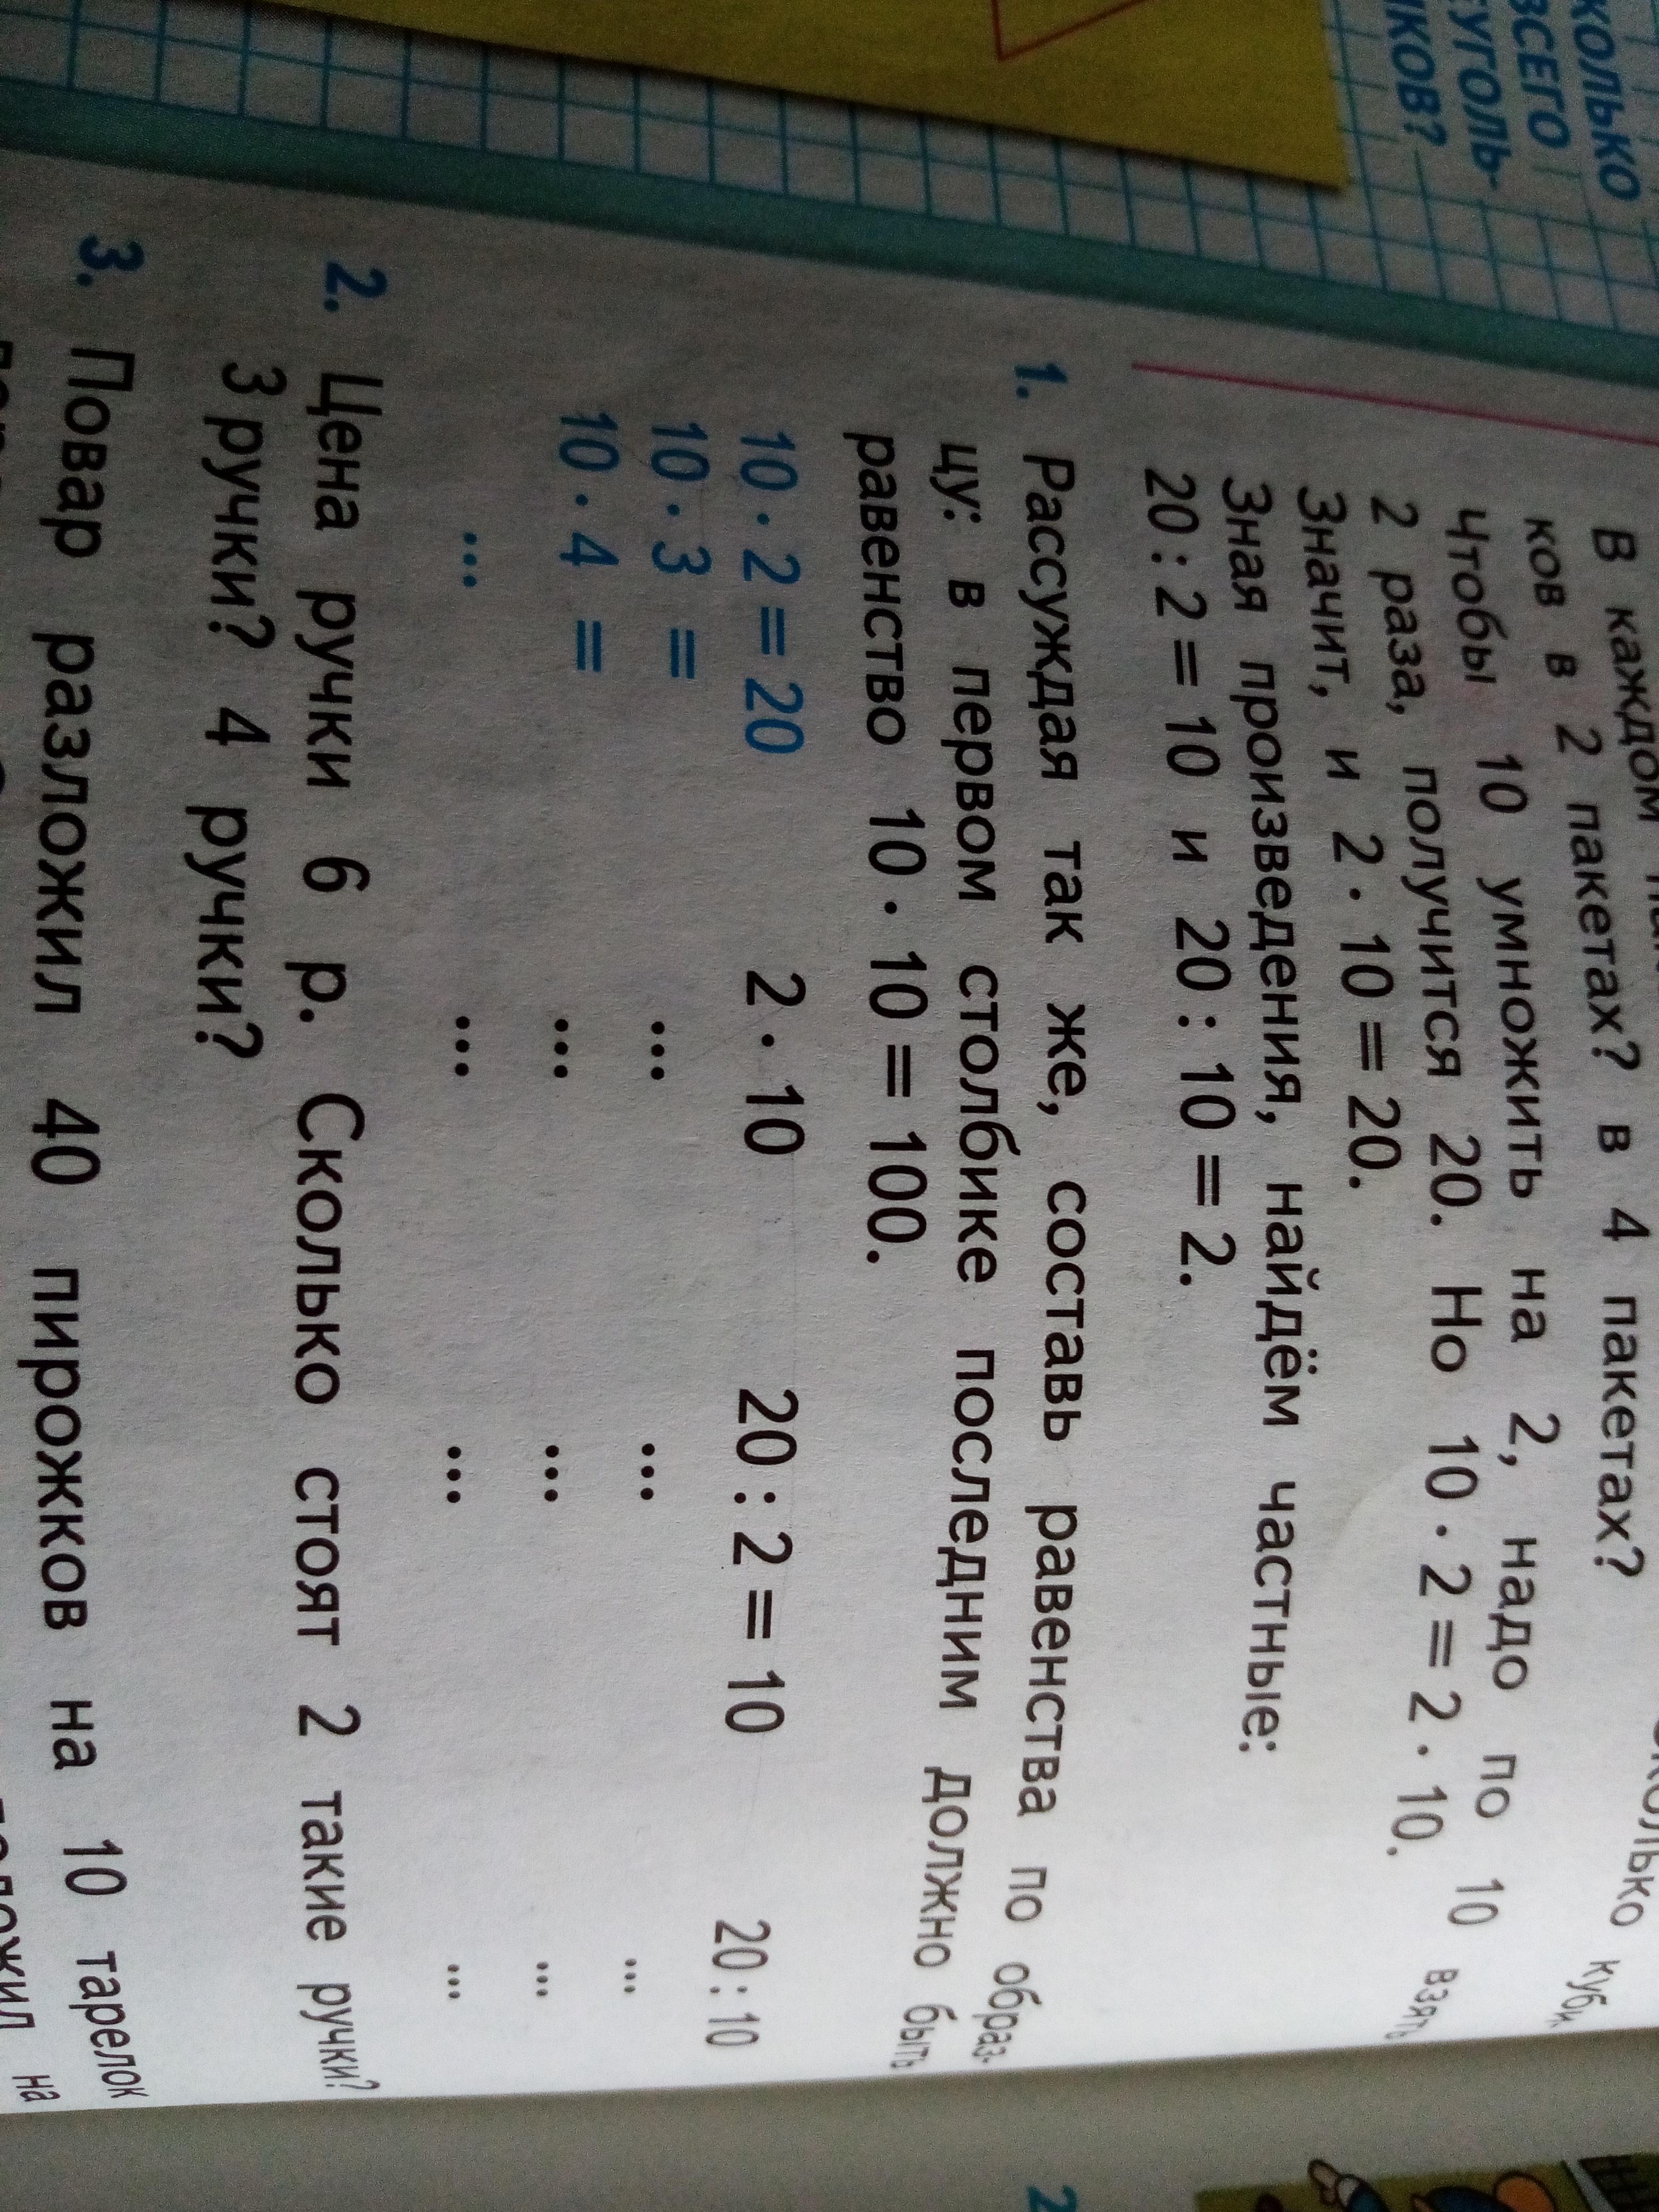 В каждом
ков в 2 пакетах? в 4 пакетах?
Чтобы 10 умножить на 2, надо по 10 взять
2 раза, получится 20. Но 10 · 2 = 2 · 10.
Значит, и 2 · 10 = 20.
Зная произведения, найдём частные:
20 : 2 = 10 и 20 : 10 = 2.
1. Рассуждая так же, составь равенства по образ-
цу: в первом столбике последним должно быть
равенство 10 · 10 = 100.
10 · 2 = 20 2 · 10 20 : 2 = 10 20 : 10
10 · 3 = ... ... ...
10 · 4 = ... ... ...
... ... ... ...
2. Цена ручки 6 р. Сколько стоят 2 такие ручки?
3 ручки? 4 ручки?
3. Повар разложил 40 пирожков на 10 тарелок
на
ВСЕГО
УГОЛЬ-
2